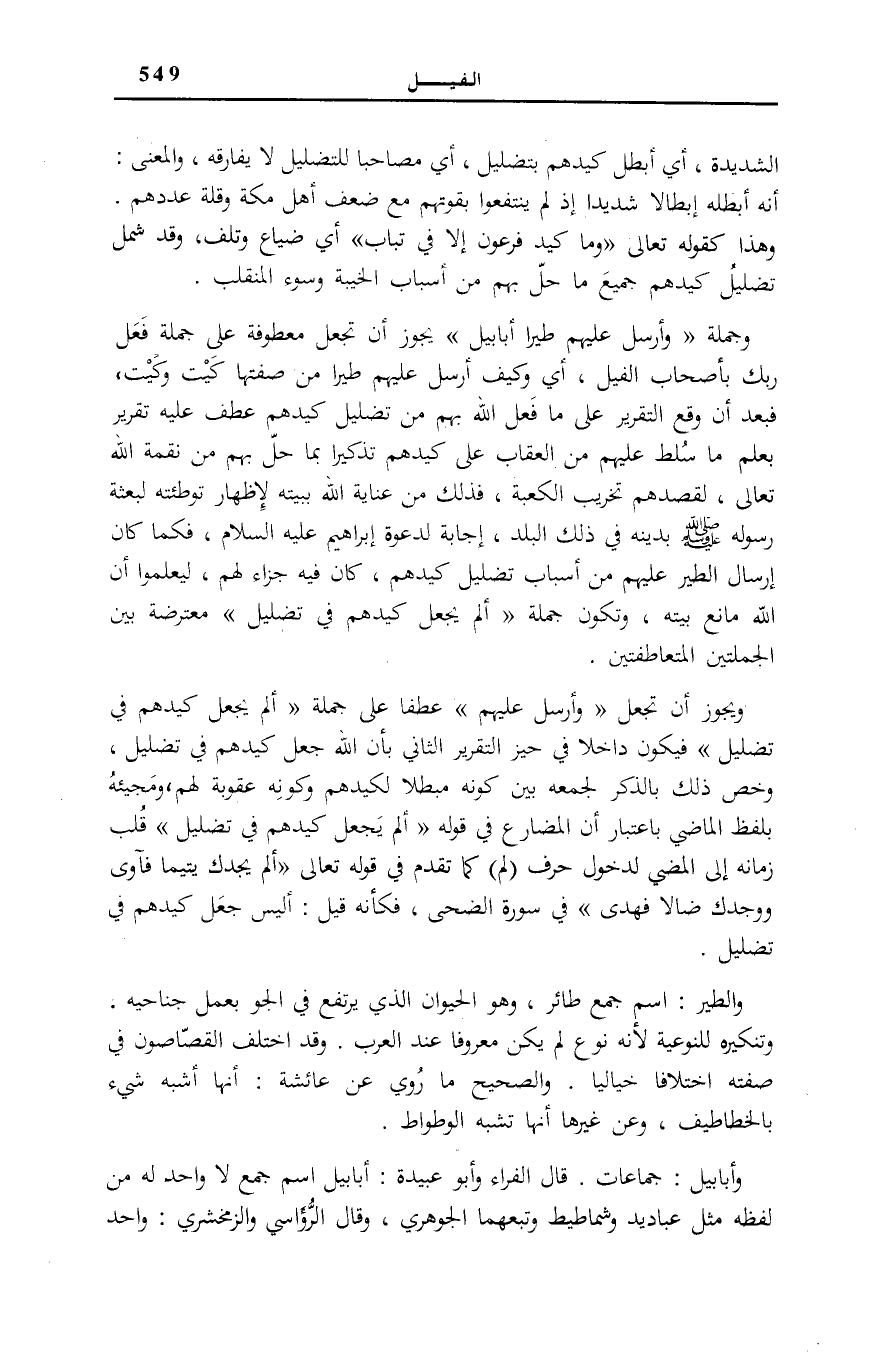 549
الفيـــل
الشديدة ، أي أبطل كيدهم بتضليل ، أي مصاحبا للتضليل لا يفارقه ، والمعنى :
أنه أبطله إبطالا شديدا إذ لم ينتفعوا بقوتهم مع ضعف أهل مكة وقلة عددهم .
وهذا كقوله تعالى «وما كيد فرعون إلا في تباب» أي ضياع وتلف، وقد شمل
تضليلُ كيدهم جميعَ ما حلّ بهم من أسباب الخيبة وسوء المنقلب .
وجملة « وأرسل عليهم طيرا أبابيل » يجوز أن تجعل معطوفة على جملة فَعَل
ربك بأصحاب الفيل ، أي وكيف أرسل عليهم طيرا من صفتها كَيْت وكَيْت،
فبعد أن وقع التقرير على ما فَعل الله بهم من تضليل كيدهم عطف عليه تقرير
بعلم ما سُلط عليهم من العقاب على كيدهم تذكيرا بما حلّ بهم من نقمة الله
تعالى ، لقصدهم تخريب الكعبة ، فذلك من عناية الله ببيته لإظهار توطئته لبعثة
رسوله ﷺ بدينه في ذلك البلد ، إجابة لدعوة إبراهيم عليه السلام ، فكما كان
إرسال الطير عليهم من أسباب تضليل كيدهم ، كان فيه جزاء لهم ، ليعلموا أن
الله مانع بيته ، وتكون جملة « ألم يجعل كيدهم في تضليل » معترضة بين
الجملتين المتعاطفتين .
ويجوز أن تجعل « وأرسل عليهم » عطفا على جملة « ألم يجعل كيدهم في
تضليل » فيكون داخلا في حيز التقرير الثاني بأن الله جعل كيدهم في تضليل ،
وخص ذلك بالذكر لجمعه بين كونه مبطلا لكيدهم وكونِه عقوبة لهم،ومَجيئهُ
بلفظ الماضي باعتبار أن المضارع في قوله « ألم يَجعل كيدهم في تضليل » قُلب
زمانه إلى المضي لدخول حرف (لم) كما تقدم في قوله تعالى «ألم يجدك يتيما فآوى
ووجدك ضالا فهدى » في سورة الضحى ، فكأنه قيل : أليس جعَل كيدهم في
تضليل .
والطير : اسم جمع طائر ، وهو الحيوان الذي يرتفع في الجو بعمل جناحيه .
وتنكيره للنوعية لأنه نوع لم يكن معروفا عند العرب . وقد اختلف القصّاصون في
صفته اختلافا خياليا . والصحيح ما رُوي عن عائشة : أنها أشبه شيء
بالخطاطيف ، وعن غيرها أنها تشبه الوطواط .
وأبابيل : جماعات . قال الفراء وأبو عبيدة : أبابيل اسم جمع لا واحد له من
لفظه مثل عباديد وشماطيط وتبعهما الجوهري ، وقال الرُّؤَاسي والزمخشري : واحد